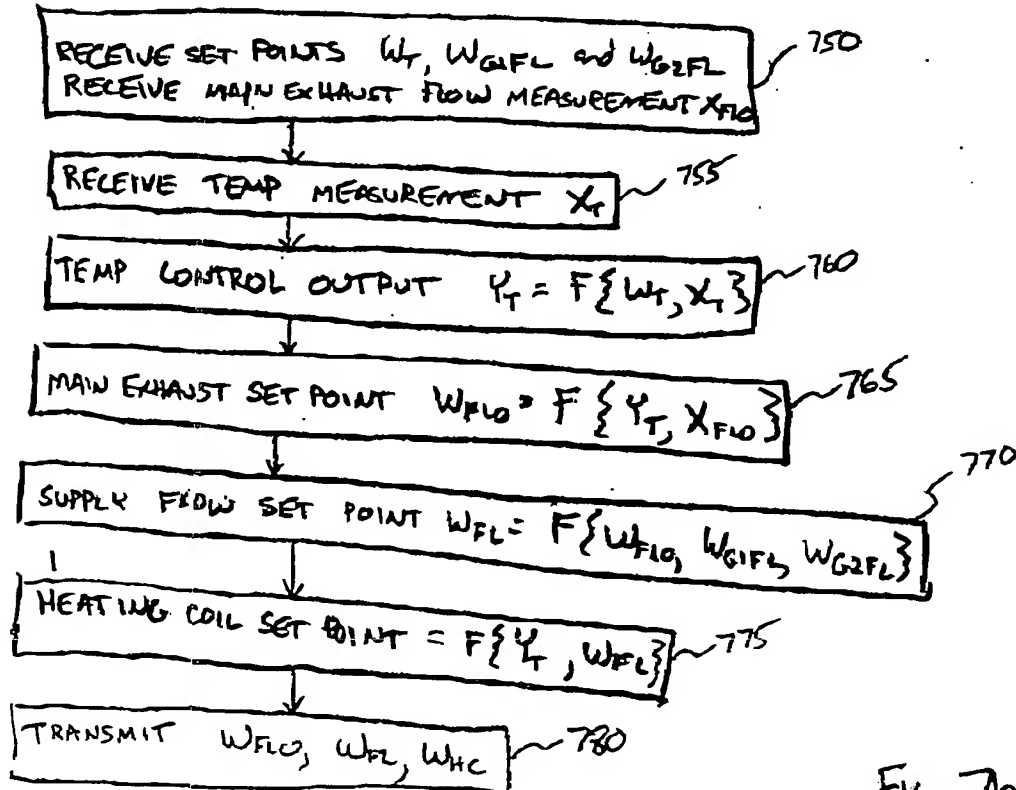 RECEIVE SET POINTS W_T, W_G1FL and W_G2FL
RECEIVE MAIN EXHAUST FLOW MEASUREMENT X_FLO
750
RECEIVE TEMP MEASUREMENT X_T
755
TEMP CONTROL OUTPUT Y_T = F{W_T, X_T}
760
MAIN EXHAUST SET POINT W_FLO = F{Y_T, X_FLO}
765
SUPPLY FLOW SET POINT W_FL = F{W_FLO, W_G1FL, W_G2FL}
770
HEATING COIL SET POINT = F{Y_T, W_FL}
775
TRANSMIT W_FLO, W_FL, W_HC
780